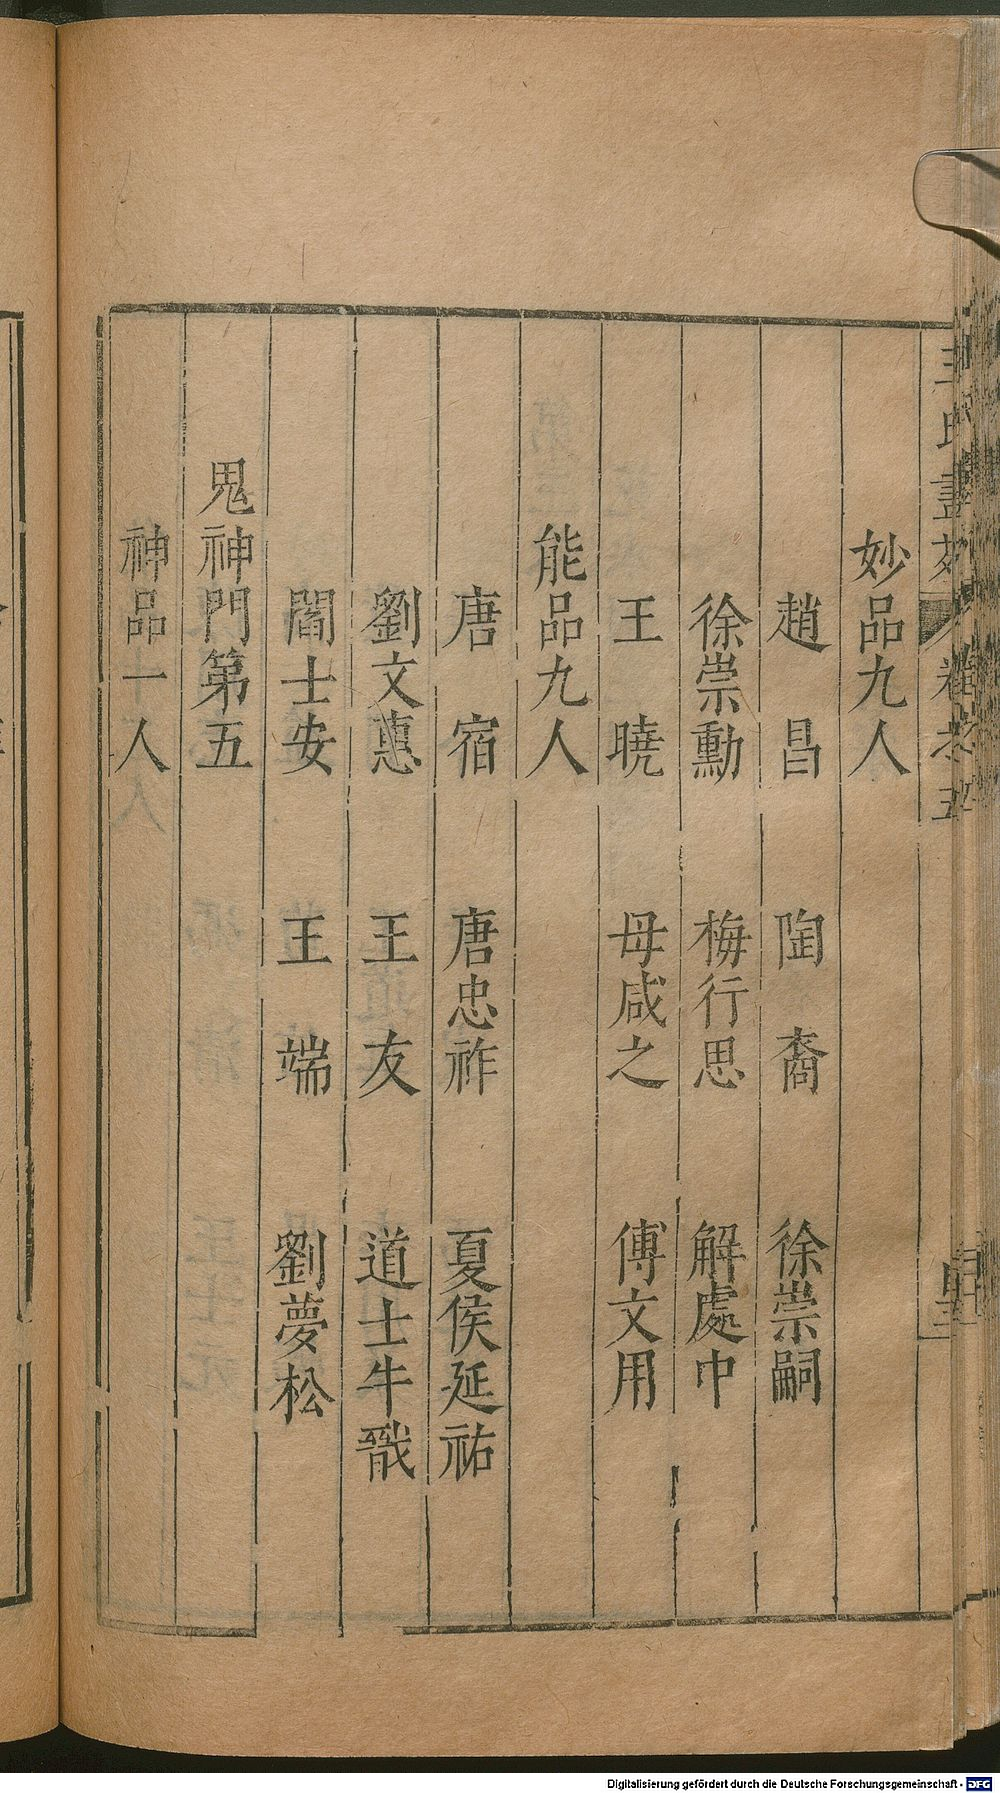 妙品九人
趙昌　陶裔　徐崇嗣
徐崇勳　梅行思　解處中
王曉　母咸之　傅文用
能品九人
唐宿　唐忠祚　夏侯延祐
劉文惠　王友　道士牛戩
閻士安　王端　劉夢松
鬼神門第五
神品一人
Digitalisierung gefördert durch die Deutsche Forschungsgemeinschaft - DFG